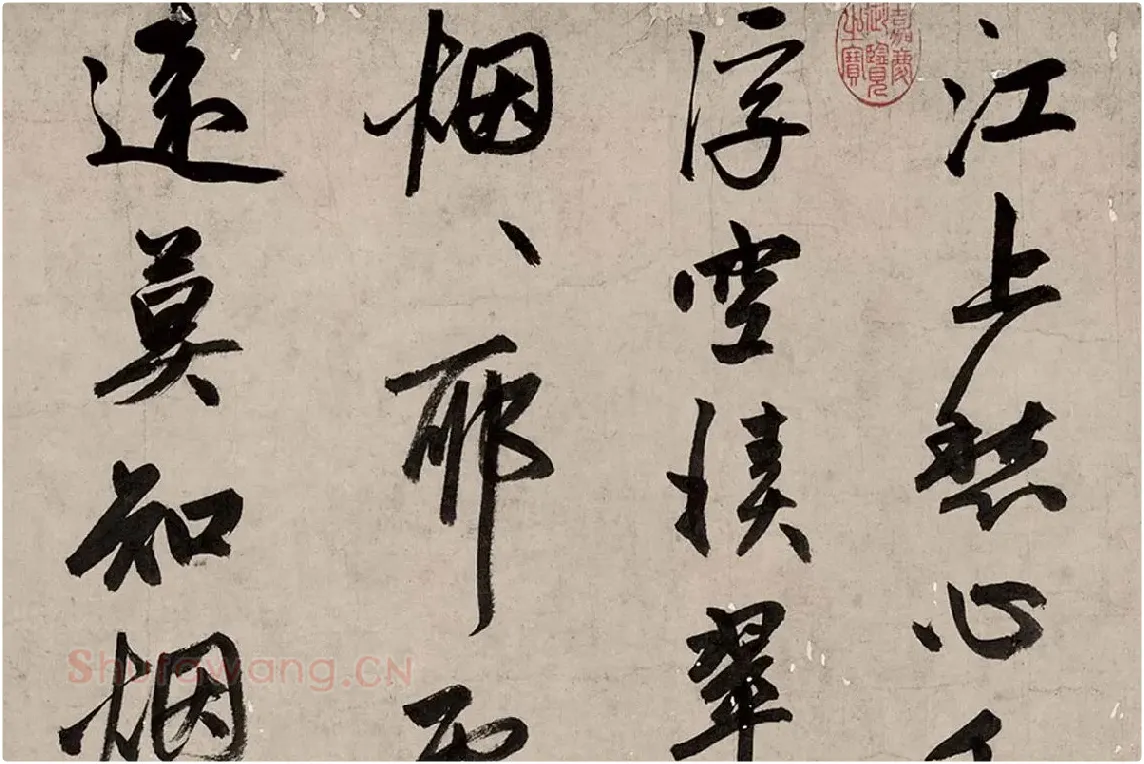 江上愁心
浮空積翠
烟、耶
遠莫知烟
嘉慶御覽之寶
Shufawang.CN